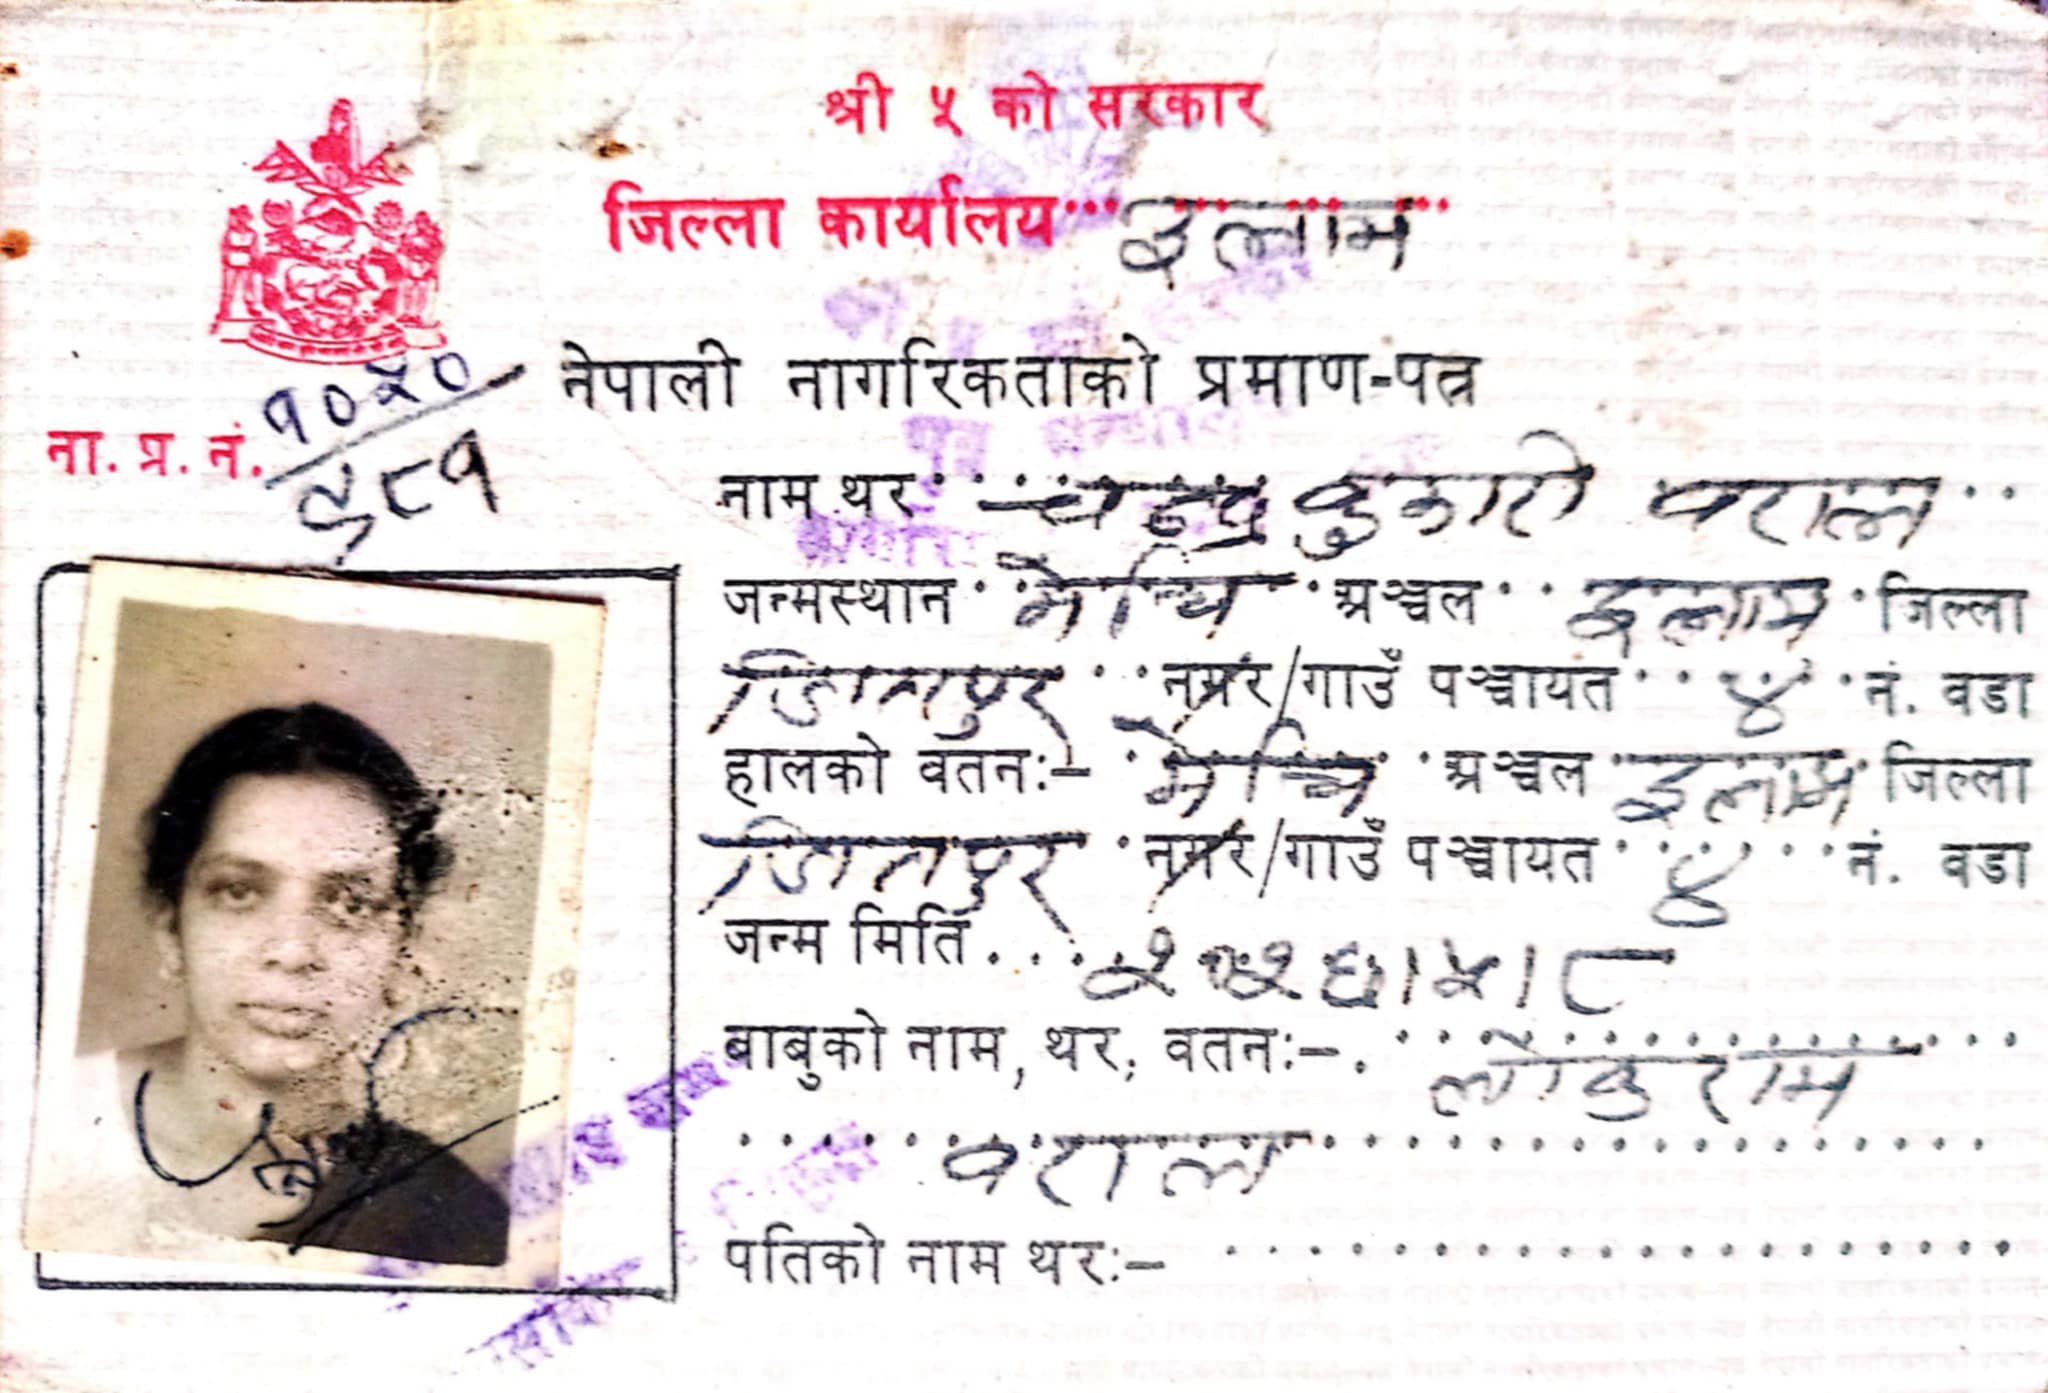 श्री ५ को सरकार
जिल्ला कार्यालय इलाम
नेपाली नागरिकताको प्रमाण-पत्र
ना. प्र. नं. १०५०/६८१
नाम थर चन्द्र कुमारी वराल
जन्मस्थान मेचि अञ्चल इलाम जिल्ला
जितपुर नगर/गाउँ पञ्चायत ४ नं. वडा
हालको वतन:- मेचि अञ्चल इलाम जिल्ला
जितपुर नगर/गाउँ पञ्चायत ४ नं. वडा
जन्म मिति
बाबुको नाम, थर, वतन:- लोकुराम
वराल
पतिको नाम थर:-